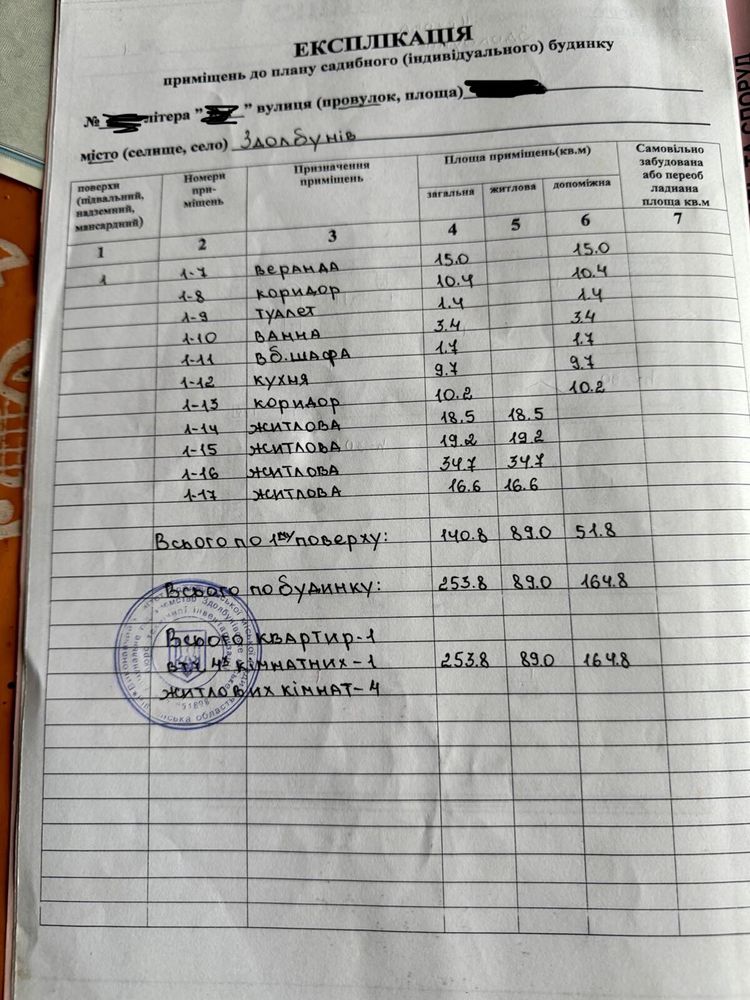 ЕКСПЛІКАЦІЯ
приміщень до плану садибного (індивідуального) будинку
№ літера " " вулиця (провулок, площа)
місто (селище, село) Здолбунів
поверхи (підвальний, надземний, мансардний) Номери при-міщень Призначення приміщень Площа приміщень(кв.м) загальна житлова допоміжна Самовільно забудована або переоб ладнана площа кв.м
1 2 3 4 5 6 7
1 1-7 веранда 15.0 15.0
1-8 коридор 10.4 10.4
1-9 туалет 1.4 1.4
1-10 ванна 3.4 3.4
1-11 вб.шафа 1.7 1.7
1-12 кухня 9.7 9.7
1-13 коридор 10.2 10.2
1-14 житлова 18.5 18.5
1-15 житлова 19.2 19.2
1-16 житлова 34.7 34.7
1-17 житлова 16.6 16.6
Всього по 1му поверху: 140.8 89.0 51.8
Всього по будинку: 253.8 89.0 164.8
Всього квартир-1
втч 4х кімнатних-1 253.8 89.0 164.8
житлових кімнат-4